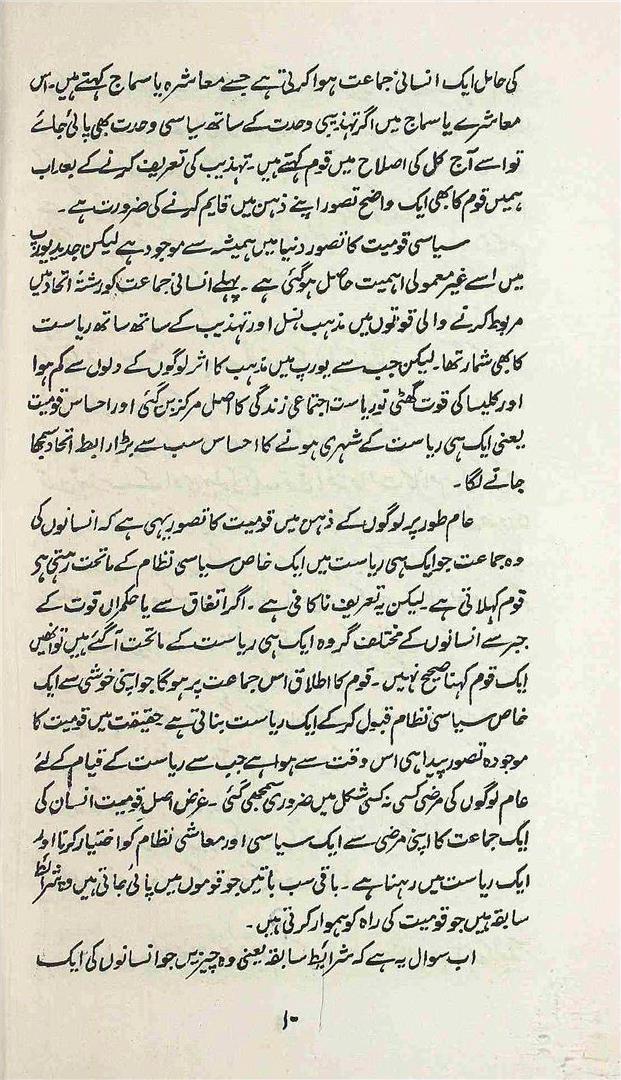 کی حامل ایک انسانی جماعت ہوا کرتی ہے جسے معاشرہ یا سماج کہتے ہیں۔ اس
معاشرے یا سماج میں اگر تہذیبی وحدت کے ساتھ سیاسی وحدت بھی پائی جائے
تو اسے آج کل کی اصلاح میں قوم کہتے ہیں۔ تہذیب کی تعریف کرنے کے بعد اب
ہمیں قوم کا بھی ایک واضح تصور اپنے ذہن میں قایم کرنے کی ضرورت ہے۔
سیاسی قومیت کا تصور دنیا میں ہمیشہ سے موجود ہے لیکن جدید یورپ
میں اسے غیر معمولی اہمیت حاصل ہو گئی ہے۔ پہلے انسانی جماعت کو رشتۂ اتحاد میں
مربوط کرنے والی قوتوں میں مذہب، نسل اور تہذیب کے ساتھ ساتھ ریاست
کا بھی شمار تھا۔ لیکن جب سے یورپ میں مذہب کا اثر لوگوں کے دلوں سے کم ہوا
اور کلیسا کی قوت گھٹی تو ریاست اجتماعی زندگی کا اصل مرکز بن گئی اور احساس قومیت
یعنی ایک ہی ریاست کے شہری ہونے کا احساس سب سے بڑا رابطِ اتحاد سمجھا
جانے لگا۔
عام طور پر لوگوں کے ذہن میں قومیت کا تصور یہی ہے کہ انسانوں کی
وہ جماعت جو ایک ہی ریاست میں ایک خاص سیاسی نظام کے ماتحت رہتی ہو
قوم کہلاتی ہے۔ لیکن یہ تعریف ناکافی ہے۔ اگر اتفاق سے یا حکمراں قوت کے
جبر سے انسانوں کے مختلف گروہ ایک ہی ریاست کے ماتحت آ گئے ہیں تو انھیں
ایک قوم کہنا صحیح نہیں۔ قوم کا اطلاق اس جماعت پر ہوگا جو اپنی خوشی سے ایک
خاص سیاسی نظام قبول کر کے ایک ریاست بناتی ہے حقیقت میں قومیت کا
موجودہ تصور پیدا ہی اس وقت سے ہوا ہے جب سے ریاست کے قیام کے لئے
عام لوگوں کی مرضی کسی نہ کسی شکل میں ضروری سمجھی گئی۔ غرض اصل قومیت انسان کی
ایک جماعت کا اپنی مرضی سے ایک سیاسی اور معاشی نظام کو اختیار کرنا اور
ایک ریاست میں رہنا ہے۔ باقی سب باتیں جو قوموں میں پائی جاتی ہیں وہ شرائط
سابقہ ہیں جو قومیت کی راہ کو ہموار کرتی ہیں۔
اب سوال یہ ہے کہ شرایط سابقہ یعنی وہ چیزیں جو انسانوں کی ایک
۱۰